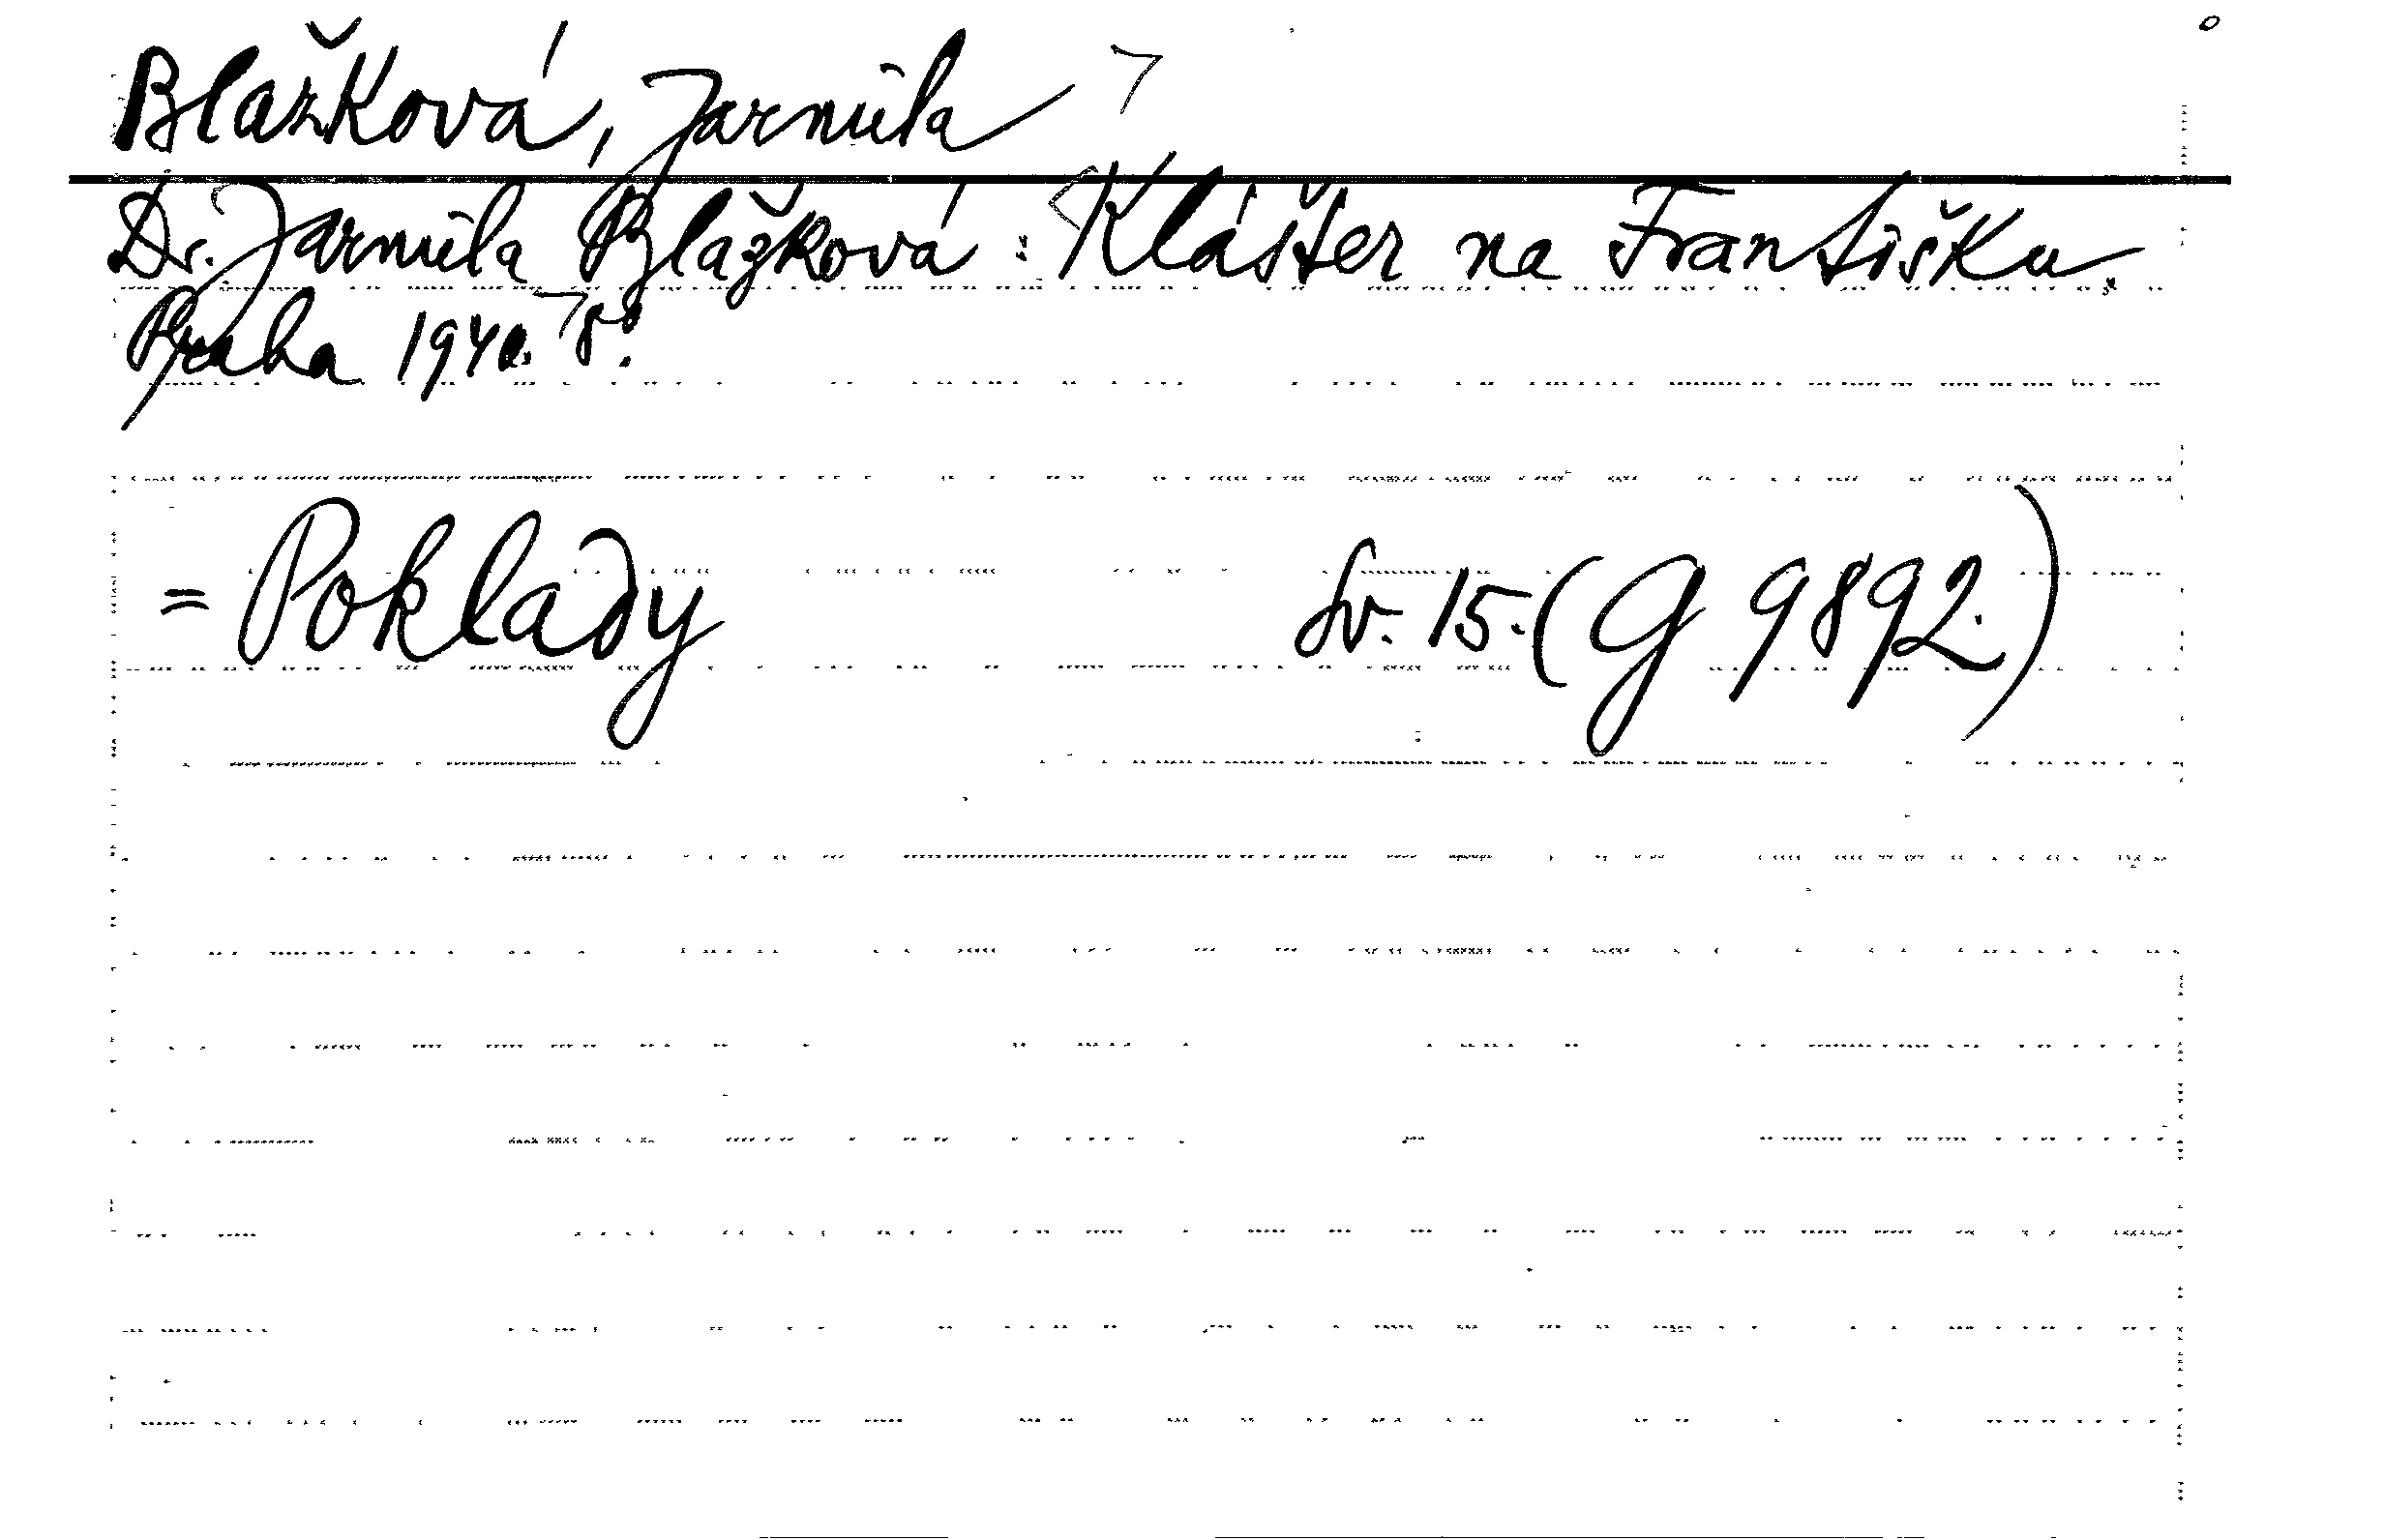 Blažková, Jarmila
Dr. Jarmila Blažková: Klášter na Františku.
Praha 1940. 8°.
= Poklady Sv. 15. (G 9892.)